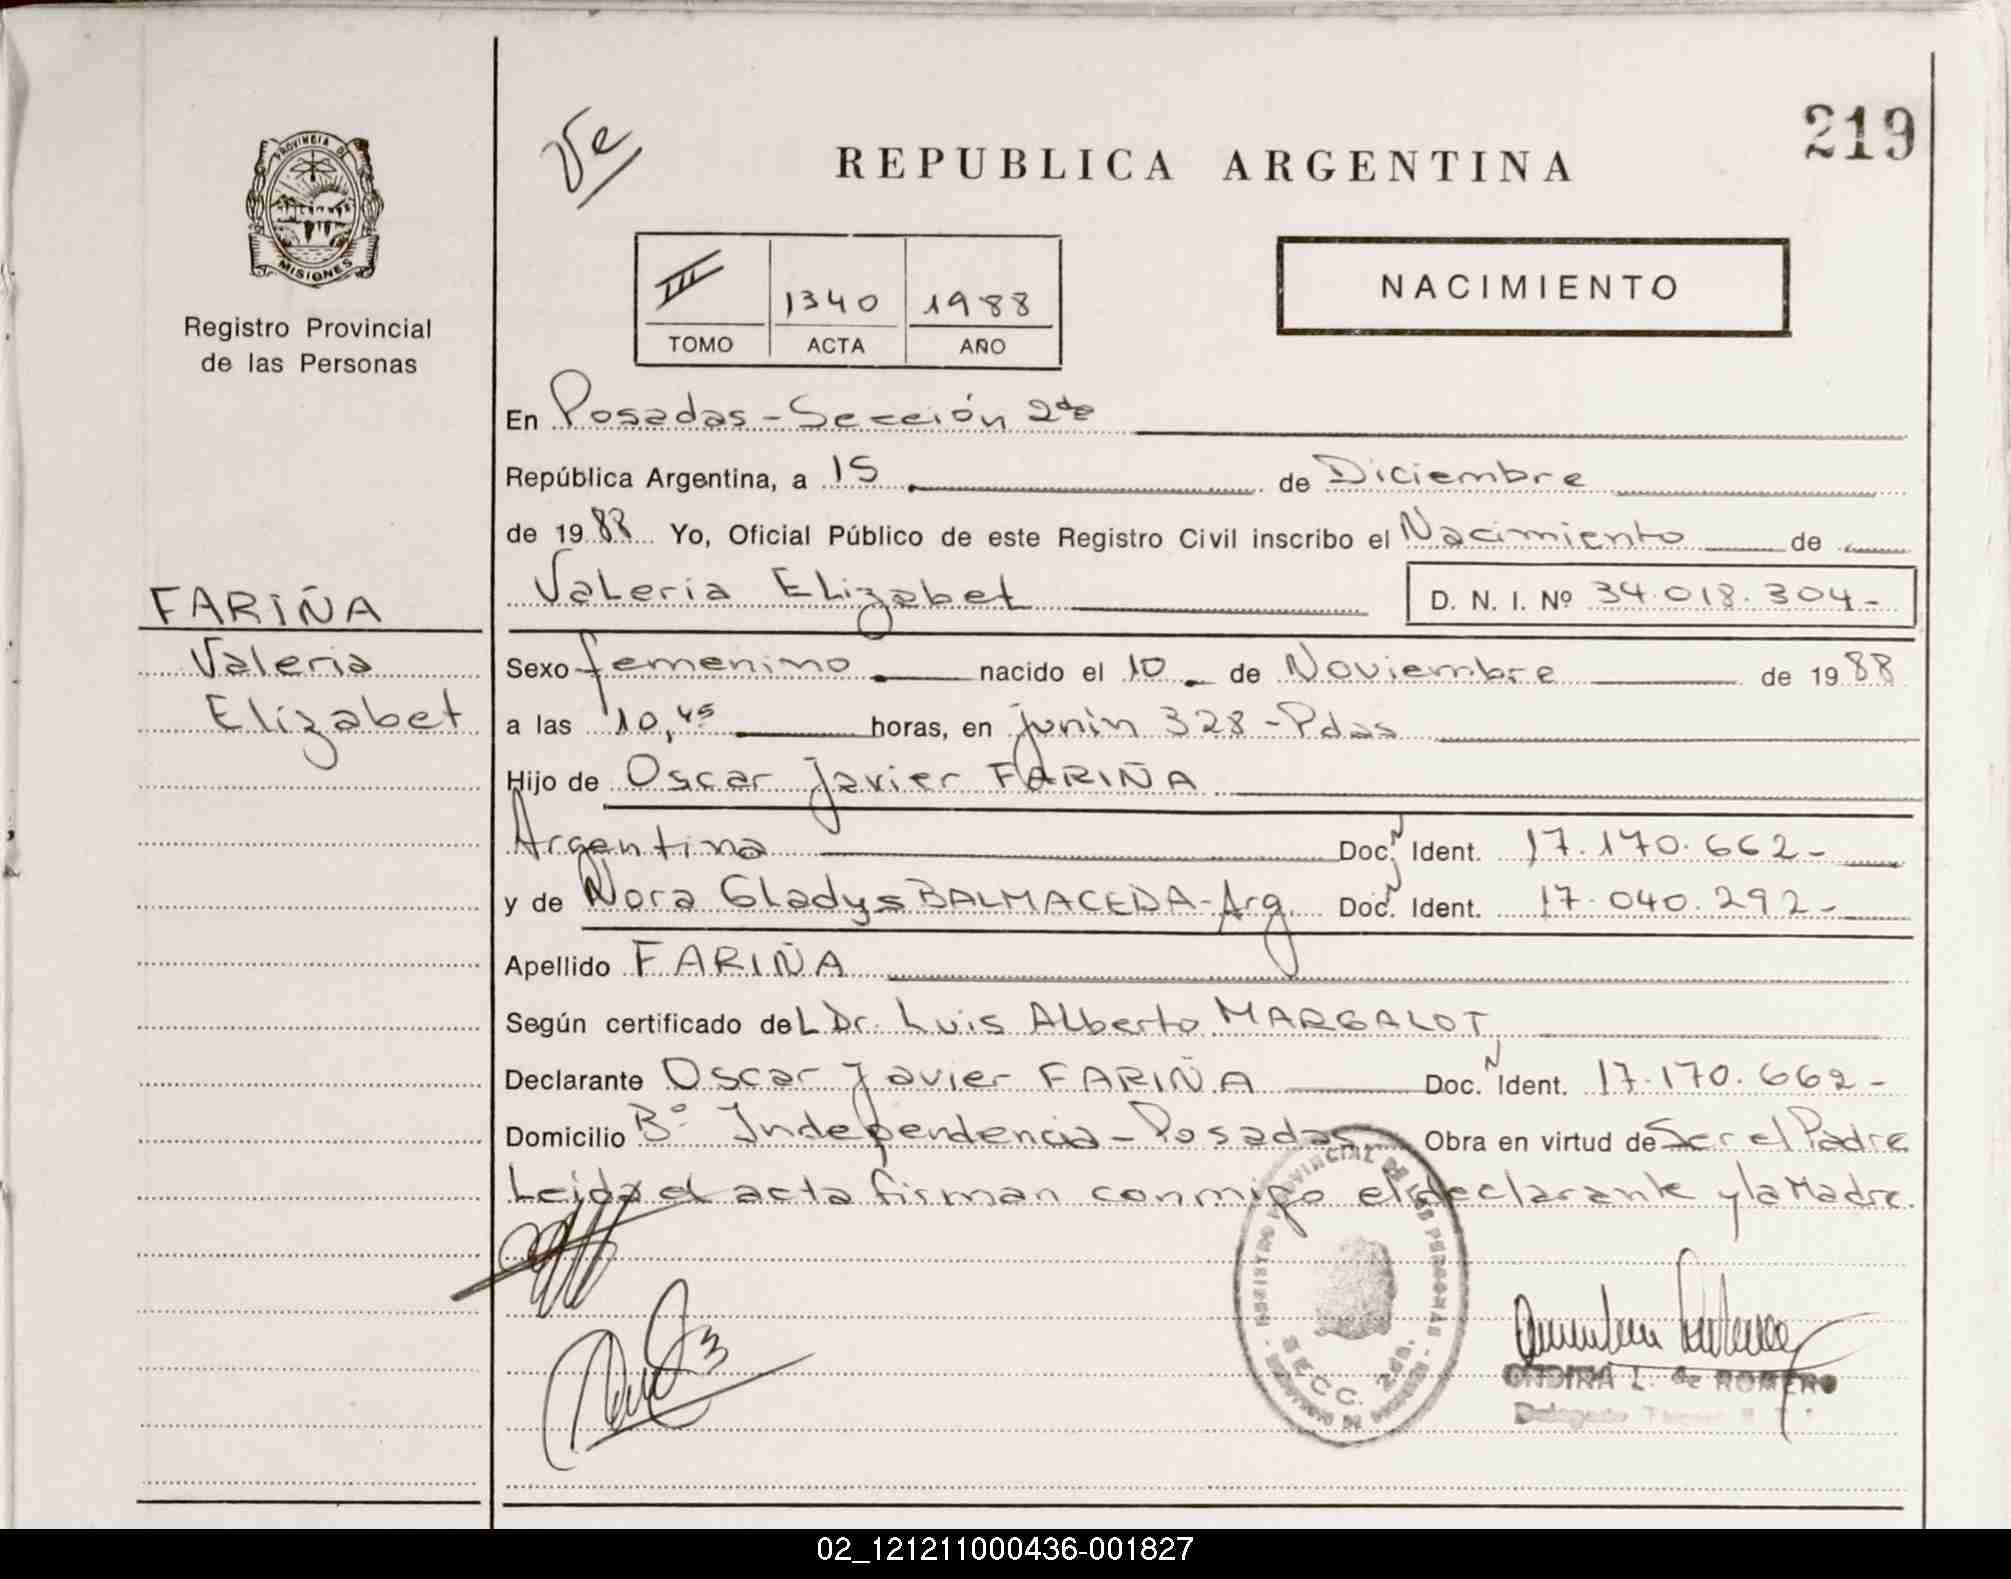 219
Ve
REPUBLICA ARGENTINA
PROVINCIA DE
MISIONES
Registro Provincial
de las Personas
III 1340 1988
TOMO ACTA AÑO
NACIMIENTO
En Posadas - Sección 2da
República Argentina, a 15 de Diciembre
de 1988 Yo, Oficial Público de este Registro Civil inscribo el Nacimiento de
Valeria Elizabet D. N. I. Nº 34.018.304-
FARIÑA
Valeria
Elizabet
Sexo femenino nacido el 10 de Noviembre de 1988
a las 10,45 horas, en Junin 328 - Pdas
Hijo de Oscar Javier FARIÑA
Argentina Doc. N Ident. 17.170.662-
y de Nora Gladys BALMACEDA - Arg. Doc. N Ident. 17.040.292-
Apellido FARIÑA
Según certificado del Dr. Luis Alberto MARGALOT
Declarante Oscar Javier FARIÑA Doc. N Ident. 17.170.662-
Domicilio Bº Independencia - Posadas Obra en virtud de Ser el Padre
Leida el acta firman conmigo el declarante y la Madre.
REGISTRO PROVINCIAL DE LAS PERSONAS
SECC. 2da.
ONDINA L. de ROMERO
Delegado
02_121211000436-001827